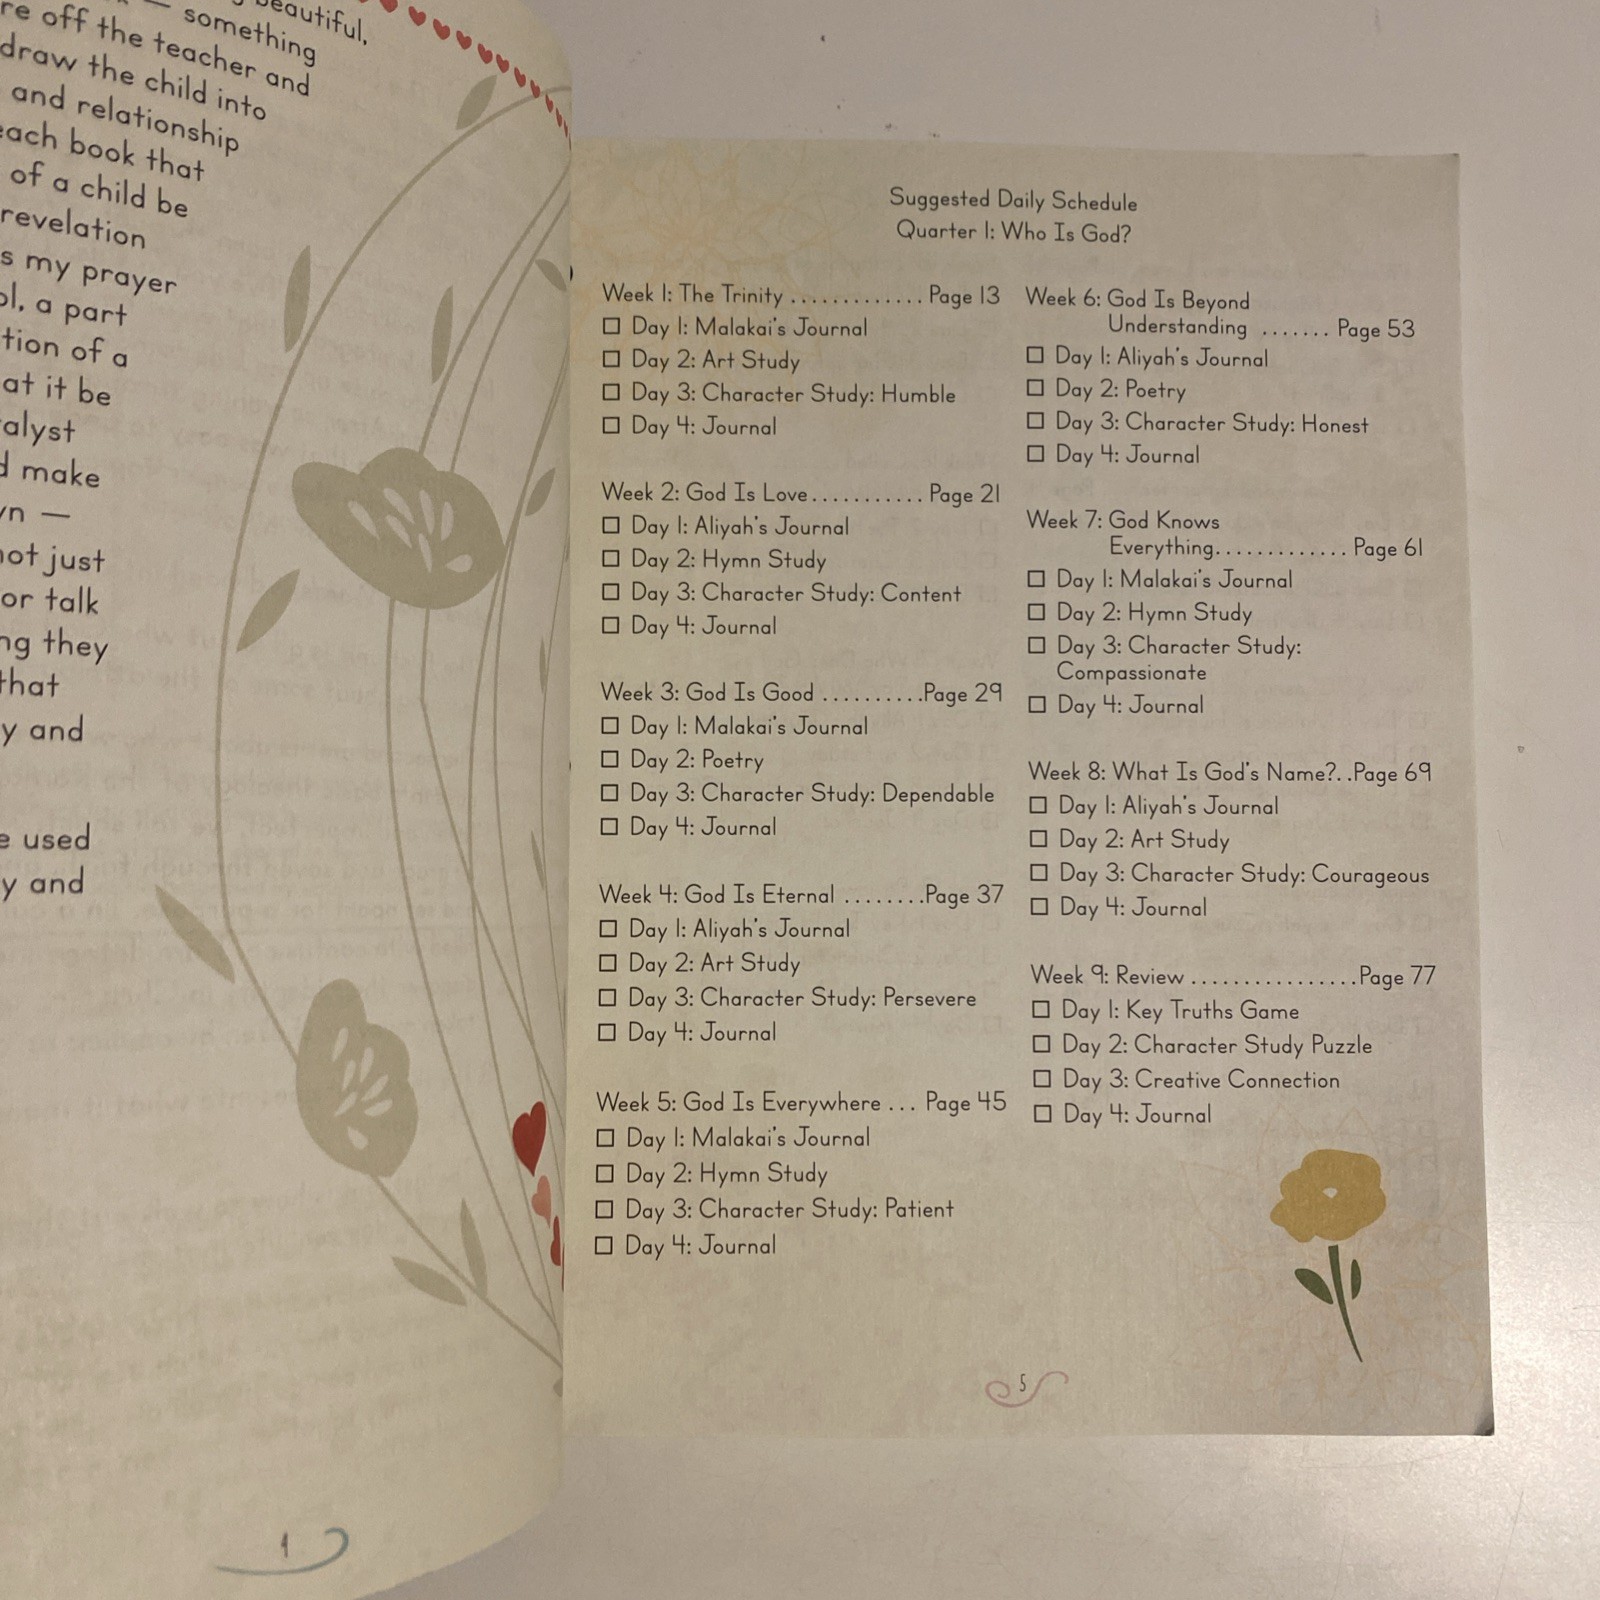 beautiful,
— something
re off the teacher and
draw the child into
and relationship
each book that
of a child be
revelation
s my prayer
ol, a part
tion of a
at it be
alyst
d make
vn —
not just
or talk
ng they
that
y and
e used
y and
Suggested Daily Schedule
Quarter 1: Who Is God?
Week 1: The Trinity ............. Page 13
☐ Day 1: Malakai's Journal
☐ Day 2: Art Study
☐ Day 3: Character Study: Humble
☐ Day 4: Journal
Week 2: God Is Love........... Page 21
☐ Day 1: Aliyah's Journal
☐ Day 2: Hymn Study
☐ Day 3: Character Study: Content
☐ Day 4: Journal
Week 3: God Is Good ..........Page 29
☐ Day 1: Malakai's Journal
☐ Day 2: Poetry
☐ Day 3: Character Study: Dependable
☐ Day 4: Journal
Week 4: God Is Eternal ........Page 37
☐ Day 1: Aliyah's Journal
☐ Day 2: Art Study
☐ Day 3: Character Study: Persevere
☐ Day 4: Journal
Week 5: God Is Everywhere ... Page 45
☐ Day 1: Malakai's Journal
☐ Day 2: Hymn Study
☐ Day 3: Character Study: Patient
☐ Day 4: Journal
Week 6: God Is Beyond
Understanding ....... Page 53
☐ Day 1: Aliyah's Journal
☐ Day 2: Poetry
☐ Day 3: Character Study: Honest
☐ Day 4: Journal
Week 7: God Knows
Everything............. Page 61
☐ Day 1: Malakai's Journal
☐ Day 2: Hymn Study
☐ Day 3: Character Study:
Compassionate
☐ Day 4: Journal
Week 8: What Is God's Name?..Page 69
☐ Day 1: Aliyah's Journal
☐ Day 2: Art Study
☐ Day 3: Character Study: Courageous
☐ Day 4: Journal
Week 9: Review ................Page 77
☐ Day 1: Key Truths Game
☐ Day 2: Character Study Puzzle
☐ Day 3: Creative Connection
☐ Day 4: Journal
5